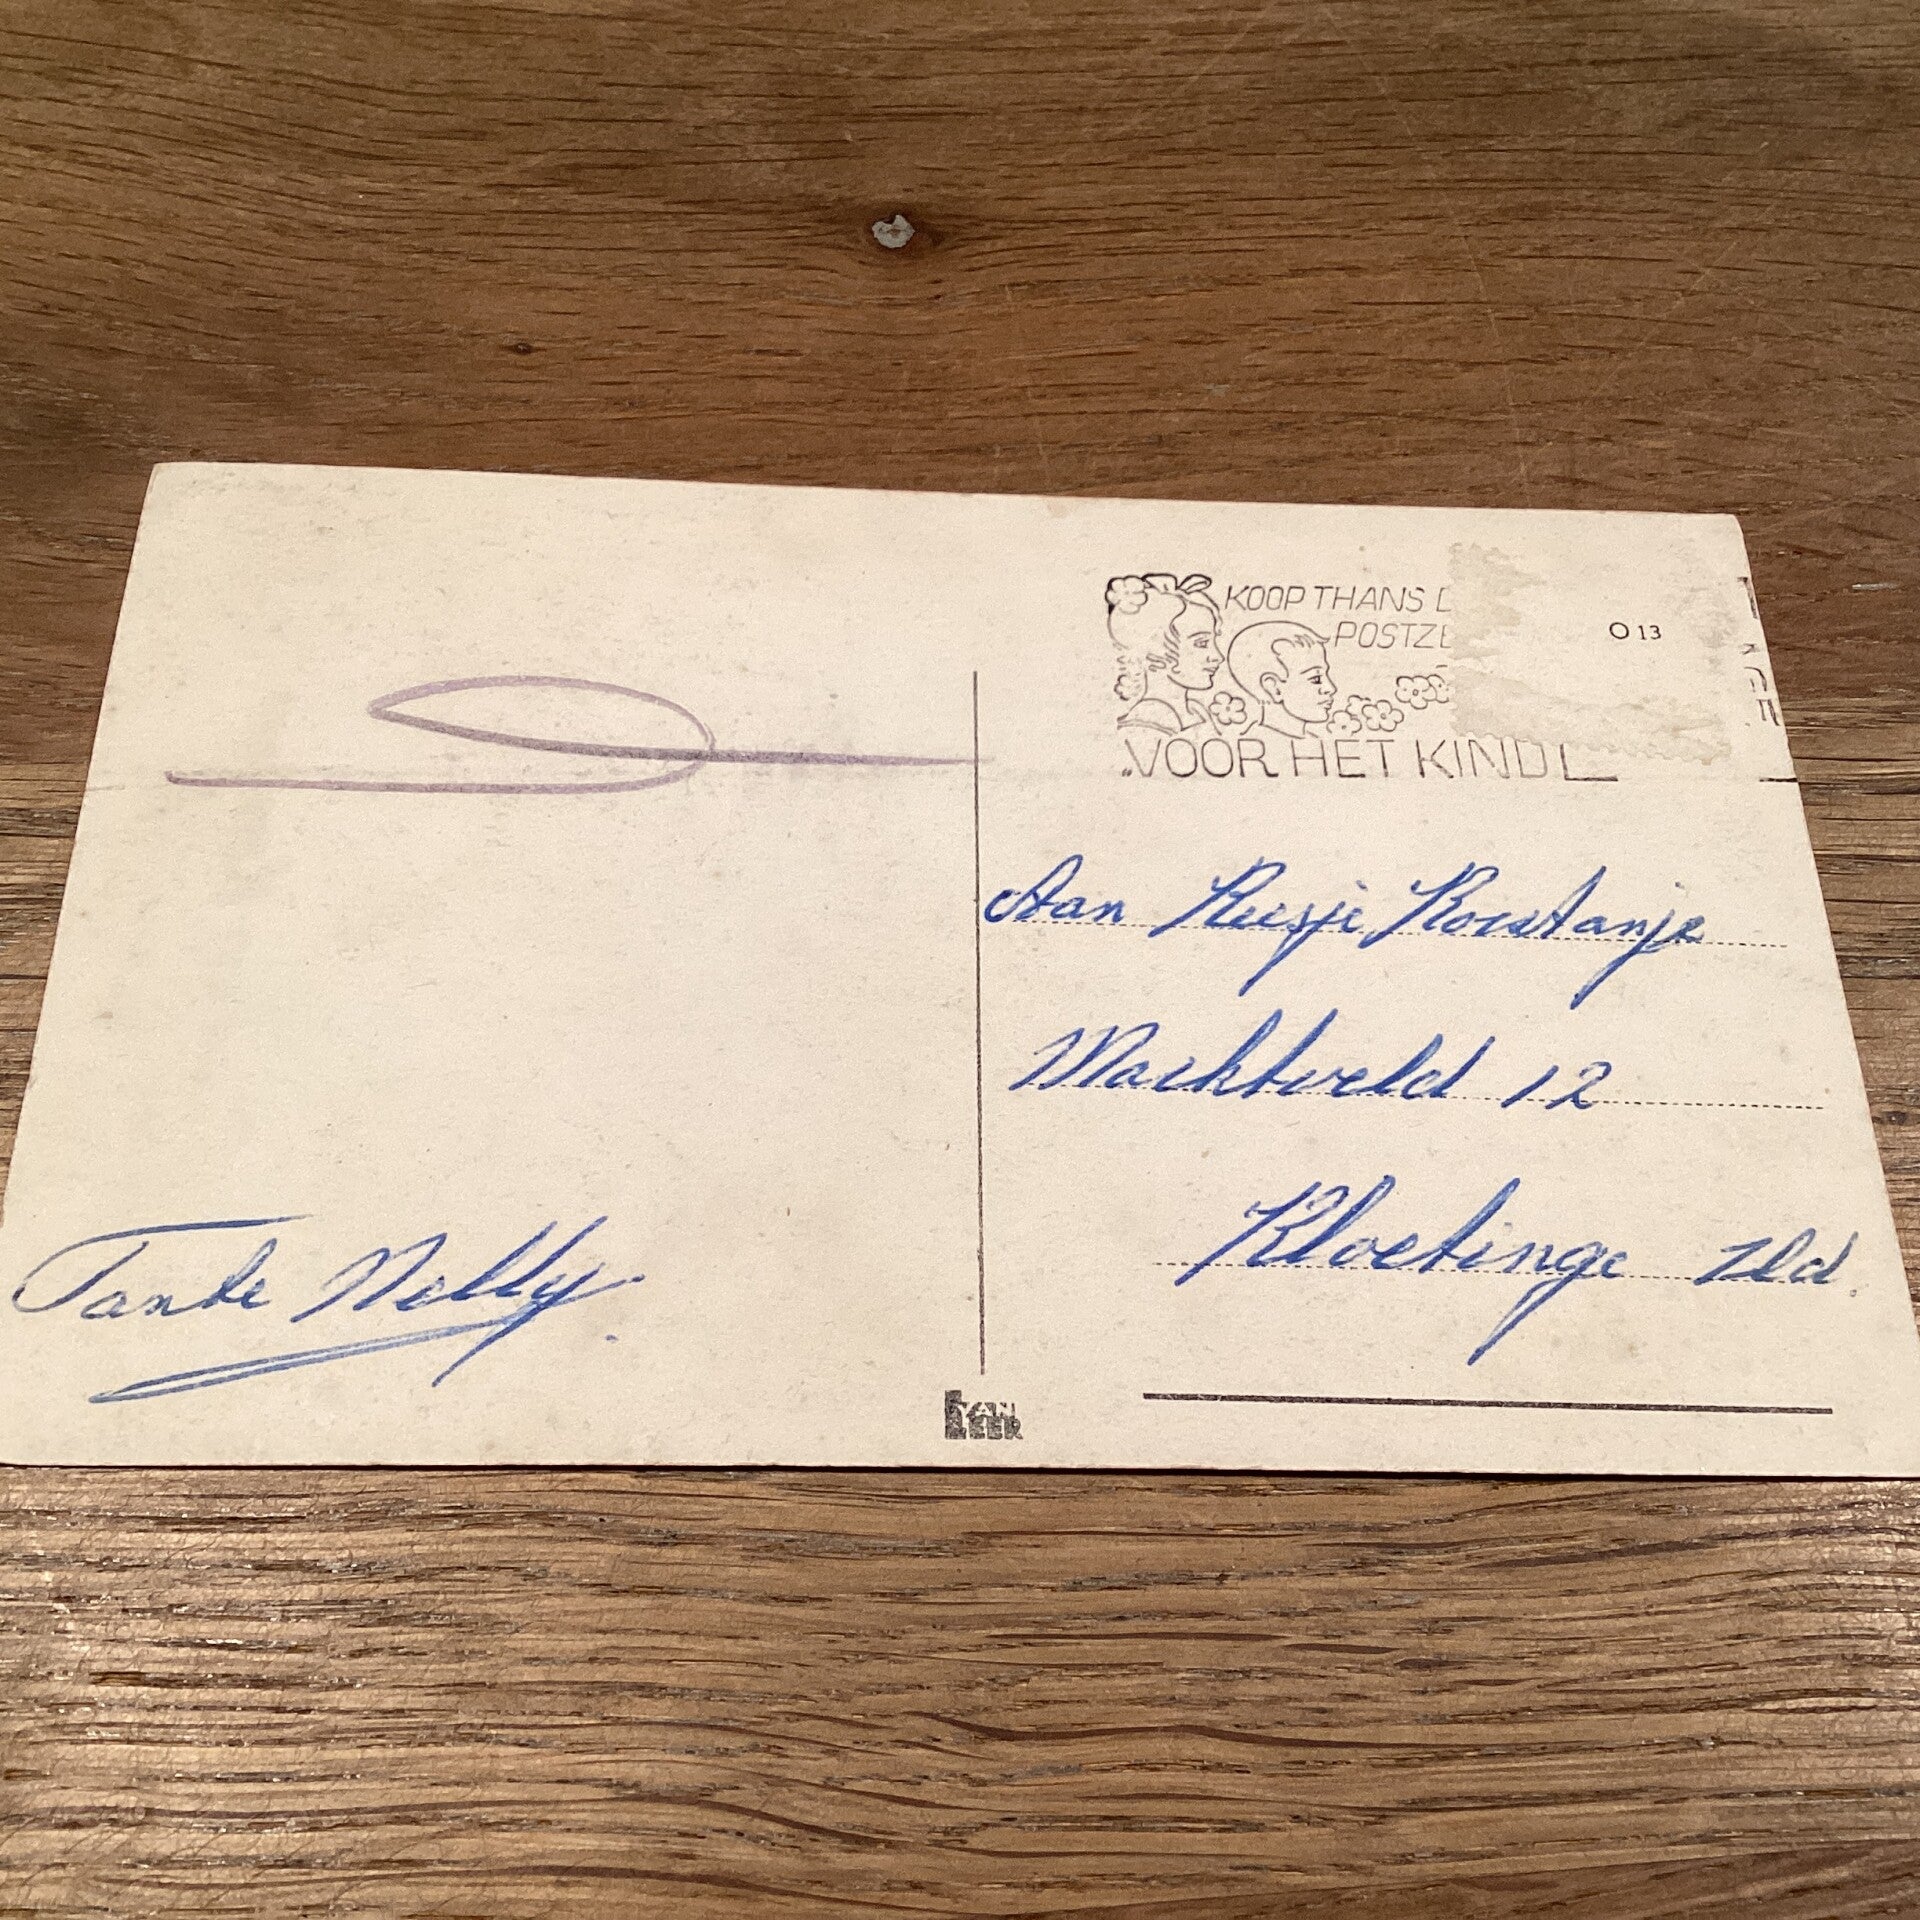 KOOP THANS D
POSTZE
O 13
VOOR HET KIND
Aan Keesje Korstanje
Marktveld 12
Kloetinge Zld.
Tante Nelly.
VAN
LEER